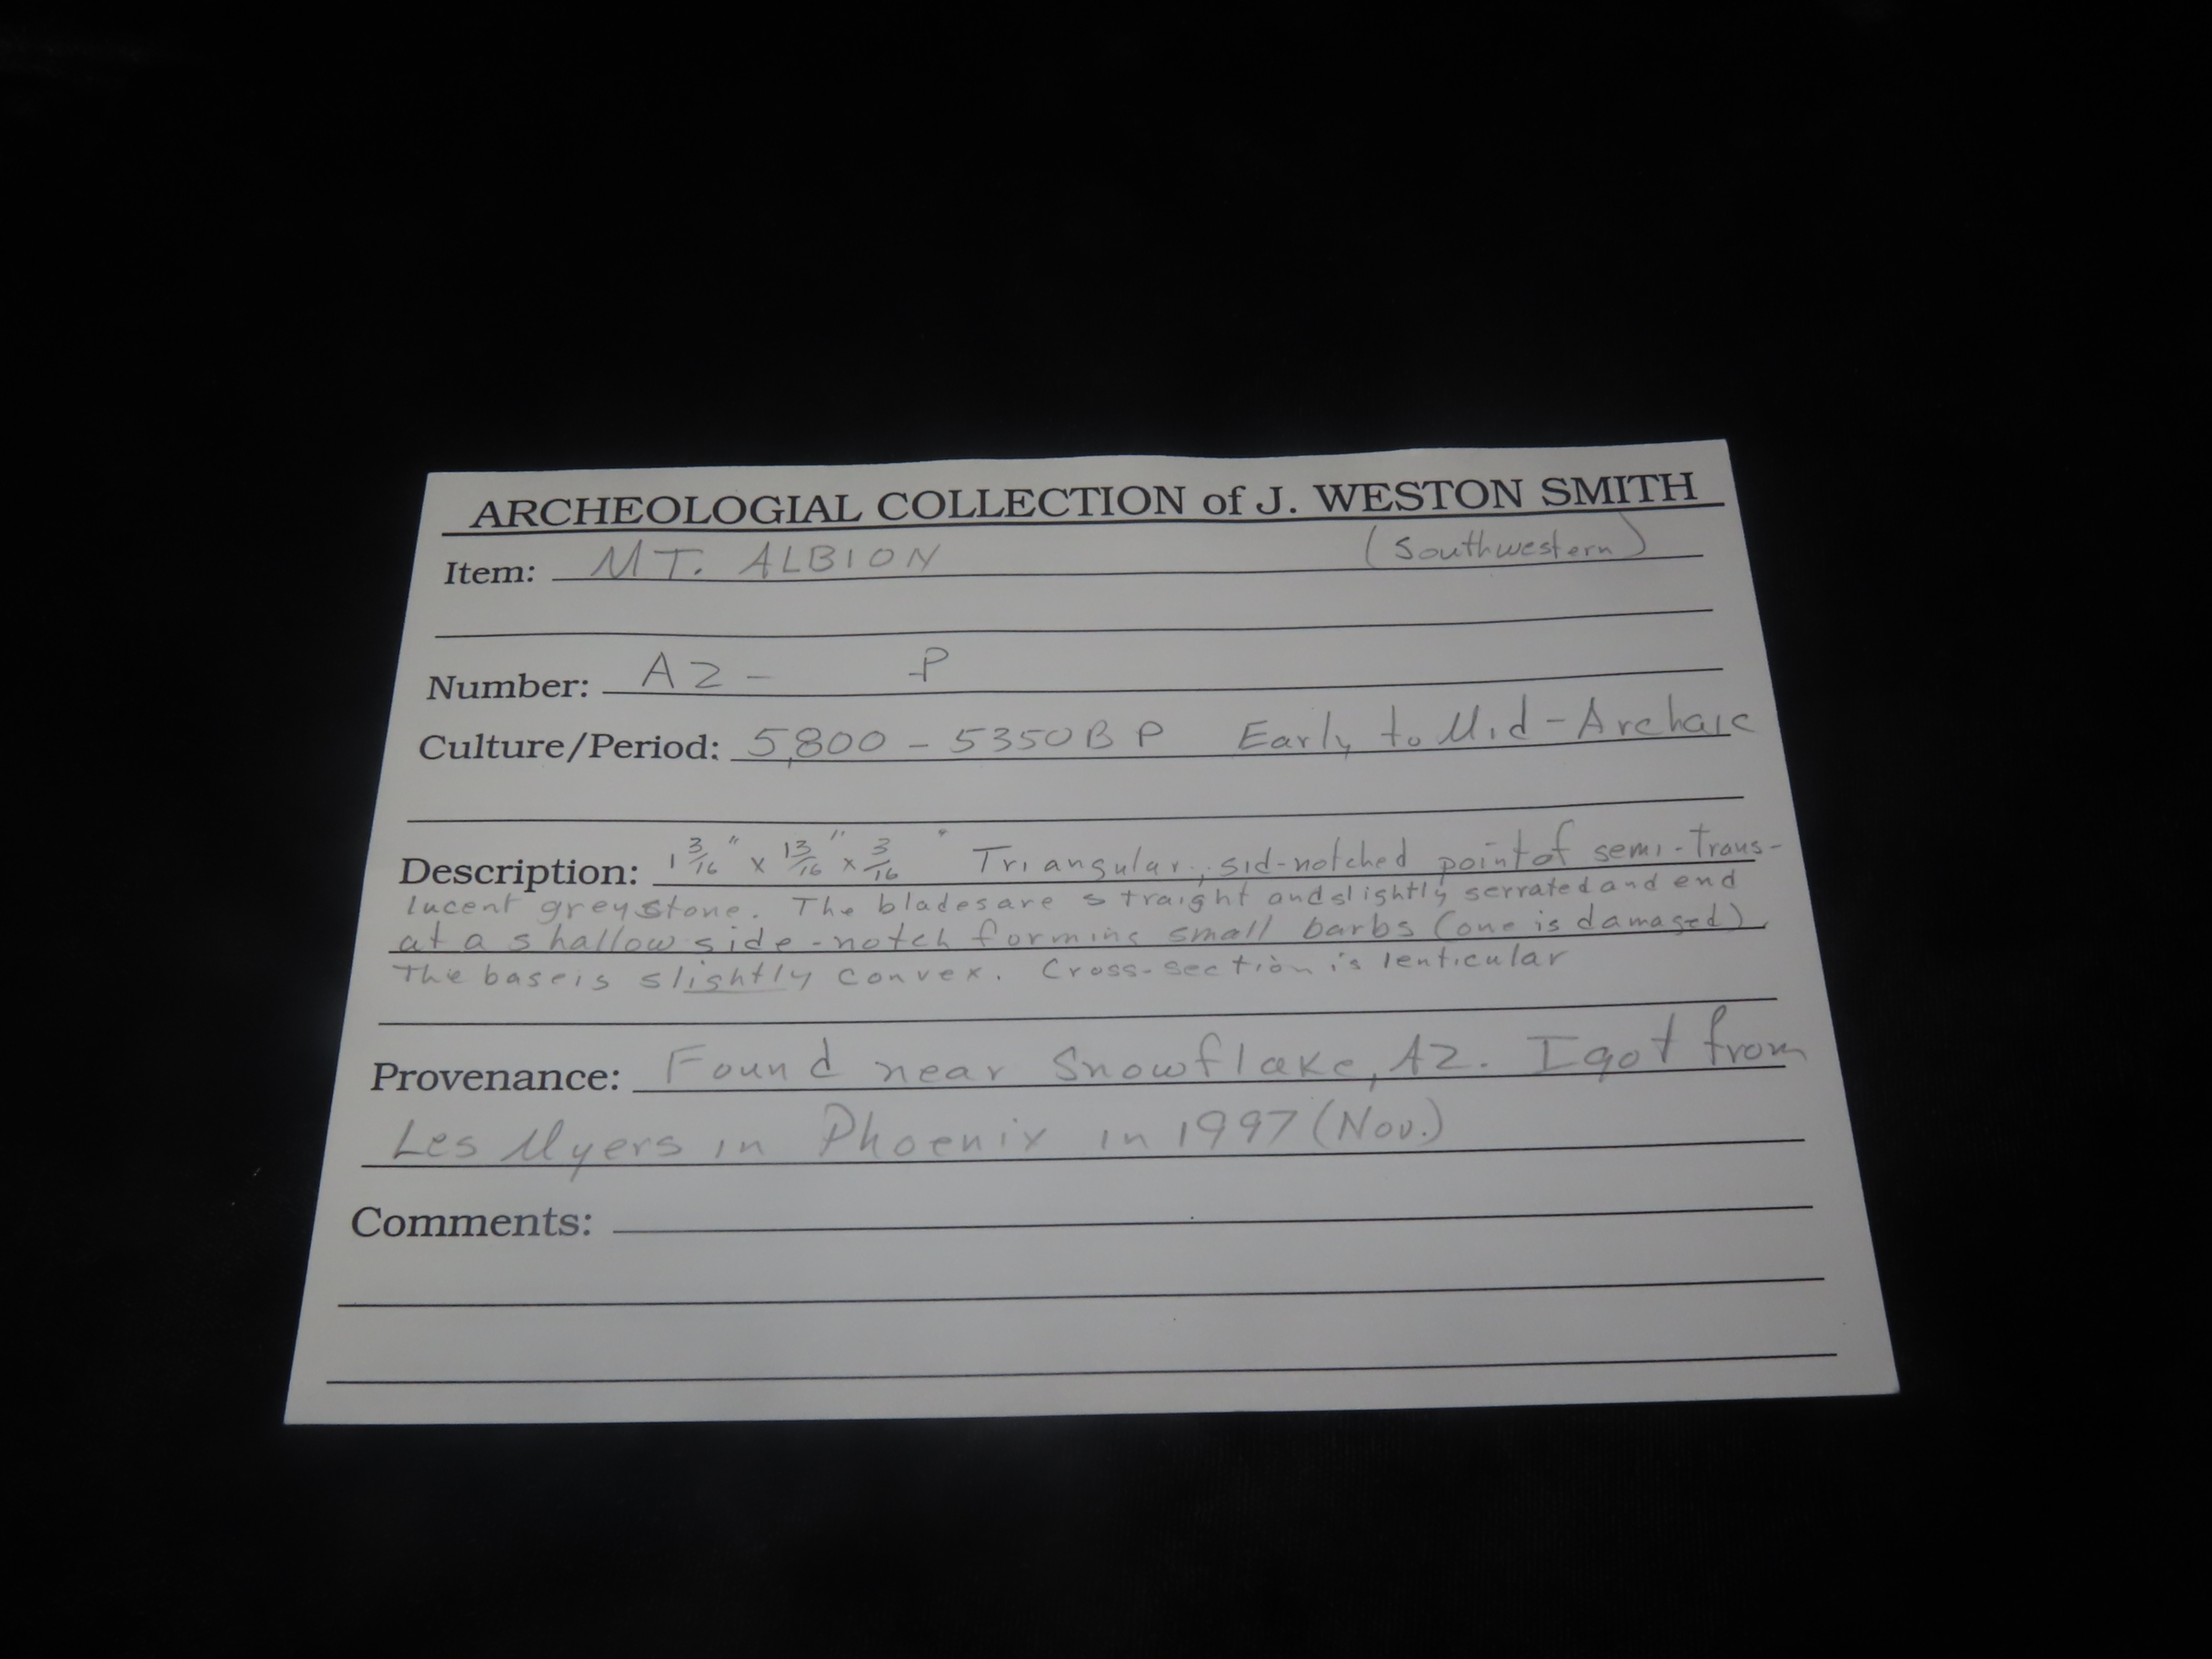 ARCHEOLOGIAL COLLECTION of J. WESTON SMITH
Item: MT. ALBION (Southwestern)
Number: AZ- -P
Culture/Period: 5,800 - 5350 BP Early to Mid-Archaic
Description: 1 3/16" x 13/16" x 3/16" Triangular, sid-notched point of semi-trans-
lucent grey stone. The blades are straight and slightly serrated and end
at a shallow side-notch forming small barbs (one is damaged).
The base is slightly convex. Cross-section is lenticular
Provenance: Found near Snowflake, AZ. I got from
Les Myers in Phoenix in 1997 (Nov.)
Comments: